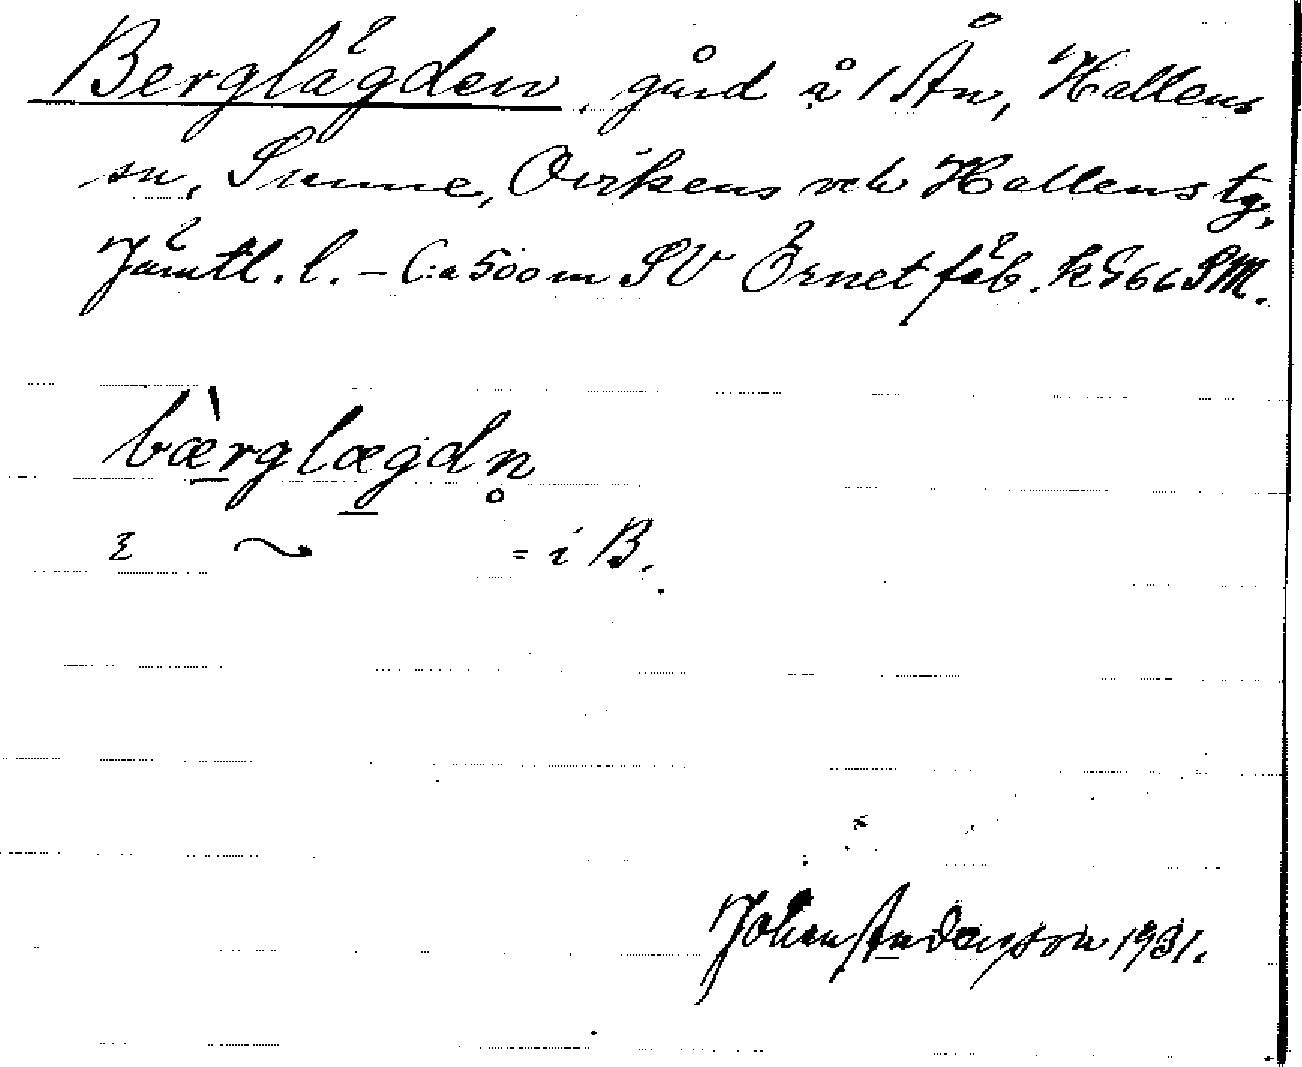 Berglägden, gård å 1 Ån, Hallens
sn, Sunne, Ovikens och Hallens tg,
Jämtl. l. – C:a 500 m SV Örnet fäb. k 866 SM.
bæ̀rglægdn̥
= i B.
Johan Anderson 1931.